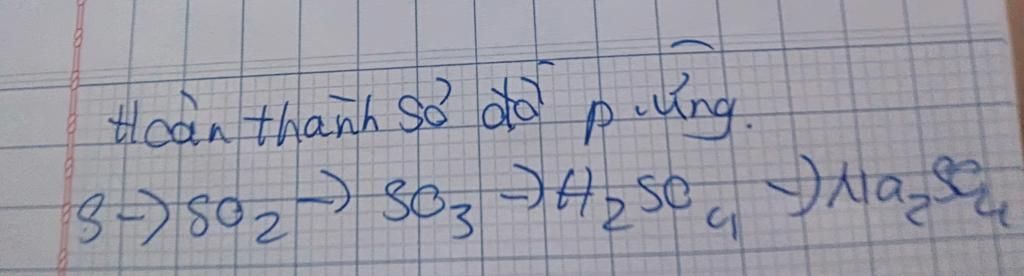 Hoàn thành sơ đồ p.ứng.
S → SO₂ → SO₃ → H₂SO₄ → Na₂SO₄